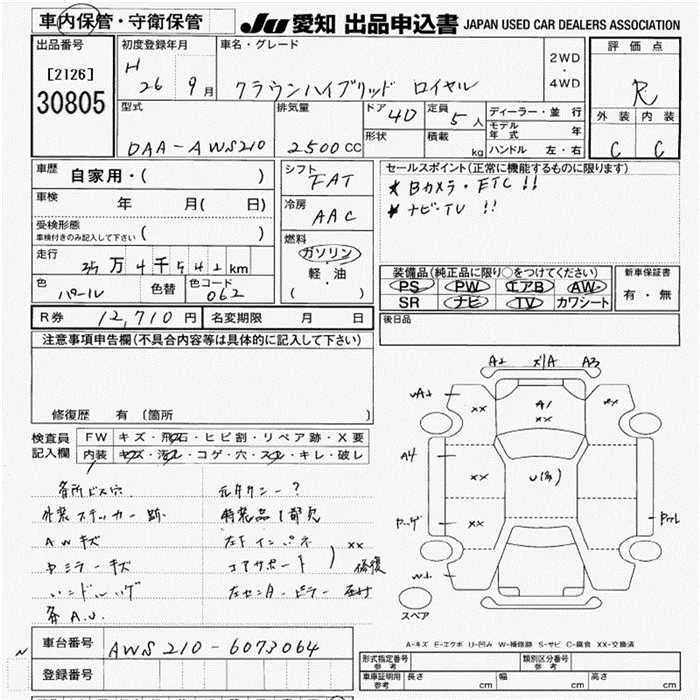 車内保管・守衛保管
JU 愛知 出品申込書 JAPAN USED CAR DEALERS ASSOCIATION
出品番号
[2126]
30805
初度登録年月
H 26 9月
車名・グレード
クラウンハイブリッド ロイヤル
2WD
・
4WD
評価点
R
外装 内装
C C
型式
DAA-AWS210
排気量
2500CC
ドア 4D
形状
定員 5人
積載 kg
ディーラー・並行
モデル年式 年
ハンドル 左・右
車歴
自家用・( )
車検 年 月( 日)
受検形態
車検付きのみ記入して下さい ( )
走行
35万4千542km
色
パール
色替
色コード
062
シフト
FAT
冷房
AAC
燃料
ガソリン
・
軽・油
( )
セールスポイント(正常に機能するものに限ります)
* Bカメラ・ETC!!
* ナビ・TV !!
装備品(純正品に限り○をつけてください)
PS PW エアB AW
SR ナビ TV カワシート
新車保証書
有・無
後日品
R券 12,710円
名変期限 月 日
注意事項申告欄(不具合内容等は具体的に記入して下さい)
修復歴 有(箇所 )
検査員
記入欄
FW キズ・飛石・ヒビ割・リペア跡・X要
内装 キズ・汚レ・コゲ・穴・スレ・キレ・破レ
各所ビス穴
外装ステッカー跡
AWキズ
ミラーキズ
ハンドルハゲ
各A.U.
元タクシー?
特装品1部欠
左Fインパネ
コアサポート
XX
修復
左センターピラー
A2 XA A3
UA2
XX
A1
XX
XX
A4
XX
U(多)
XX
W2
スペア
A-キズ E-エクボ U-凹み W-補修跡 S-サビ C-腐食 XX-交換済
車台番号
AWS210-6073064
登録番号
型式指定番号
参考
類別区分番号
参考
車庫証明用
参考
長さ cm 幅 cm 高さ cm